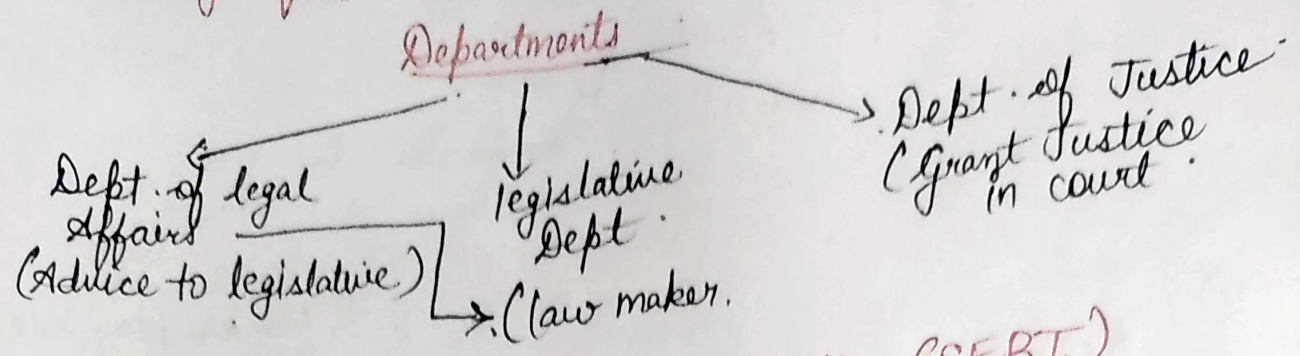 Departments
Dept. of legal
Affairs
(Advice to legislature)
legislative
Dept.
(law maker.
Dept. of Justice
(Grant Justice
in court.